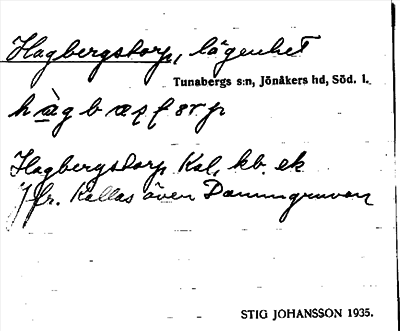 Hagbergstorp, lägenhet
Tunabergs s:n, Jönåkers hd, Söd. l.
Hagbergstorp Kal, kb. ek
Jfr. Kallas även Dammgruvan
STIG JOHANSSON 1935.